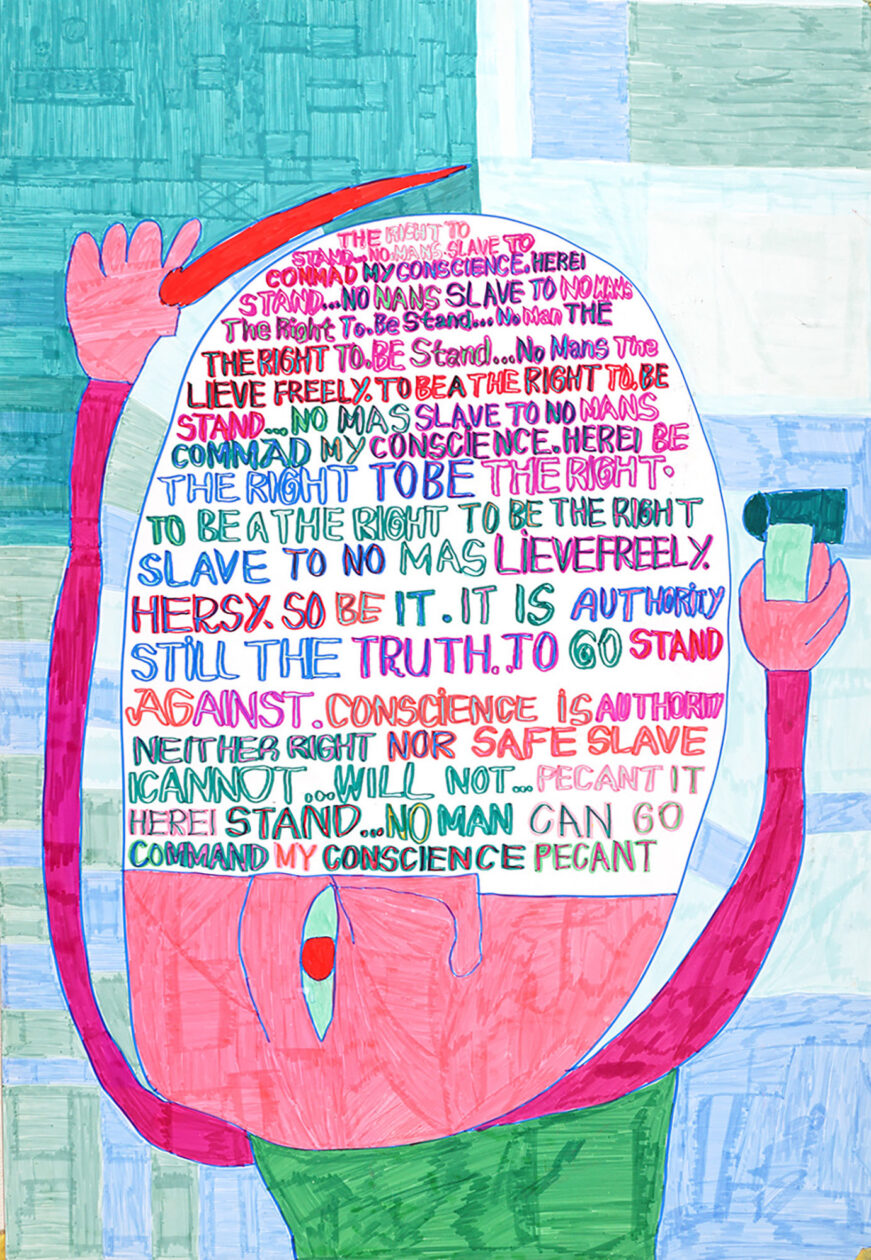 THE RIGHT TO
STAND...NO MANS SLAVE TO
COMMAD MY CONSCIENCE. HEREI
STAND...NO NANS SLAVE TO NO MANS
The Right To.Be Stand.... No Man THE
THE RIGHT TO.BE Stand...No Mans The
LIEVE FREELY. TO BE A THE RIGHT TO.BE
STAND... NO MAS SLAVE TO NO MANS
COMMAD MY CONSCIENCE. HEREI BE
THE RIGHT TO BE THE RIGHT.
TO BE A THE RIGHT TO BE THE RIGHT
SLAVE TO NO MAS LIEVE FREELY.
HERSY. SO BE IT. IT IS AUTHORITY
STILL THE TRUTH. TO GO STAND
AGAINST. CONSCIENCE IS AUTHORITY
NEITHER RIGHT NOR SAFE SLAVE
I CANNOT ...WILL NOT... PECANT IT
HEREI STAND...NO MAN CAN GO
COMMAND MY CONSCIENCE PECANT